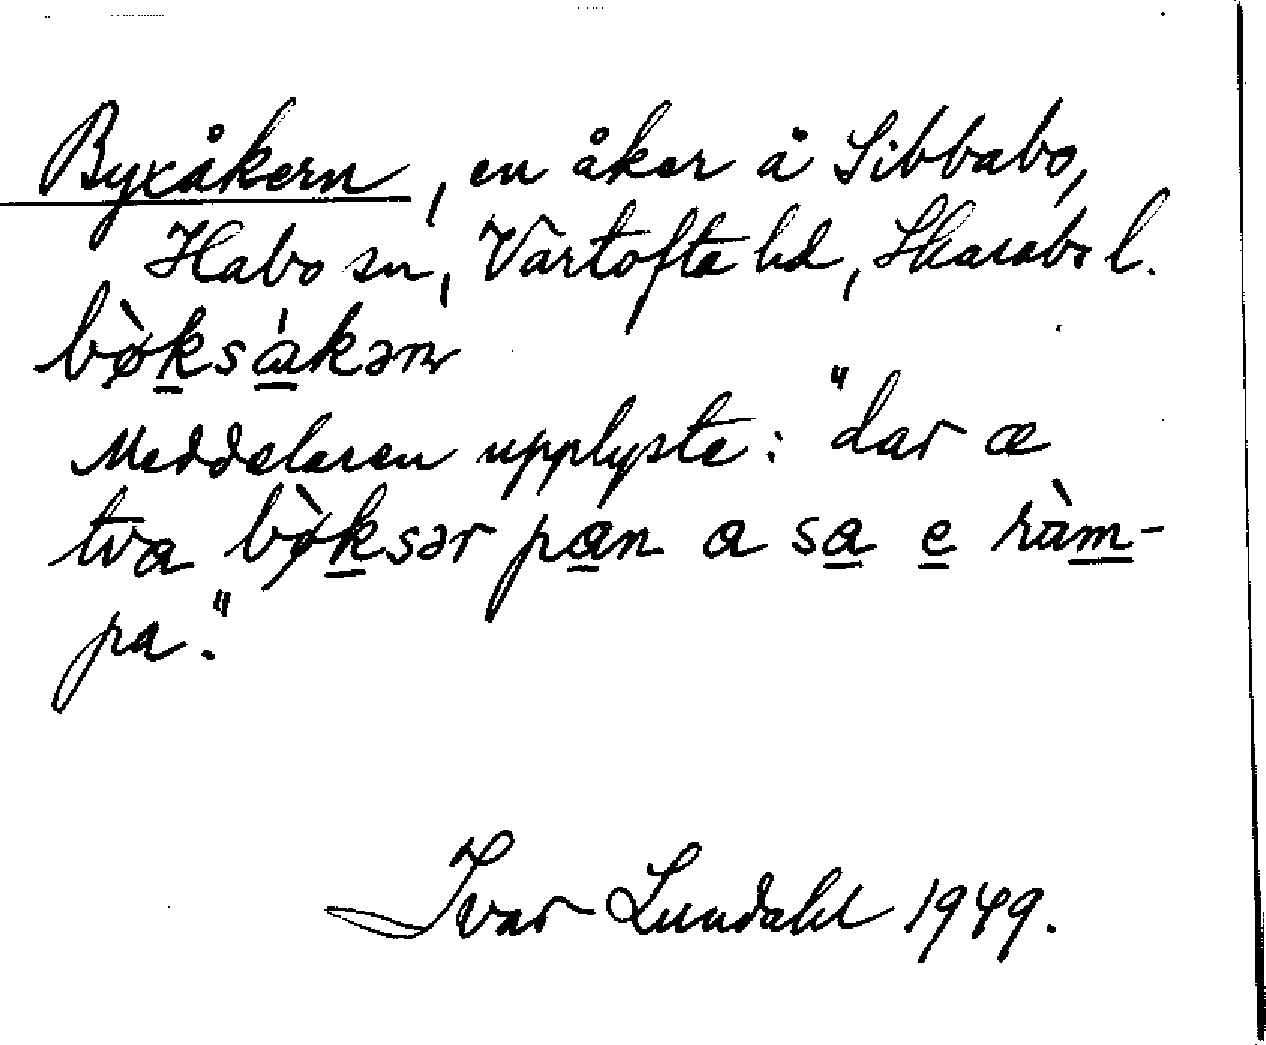 Byxåkern, en åker å Sibbabo,
Habo sn, Vartofta hd, Skarabo l.
bø̀ksákən
Meddelaren upplyste: "dar æ
tva bø̀ksər pan a sa e ràm-
pa."
Ivar Lundahl 1949.